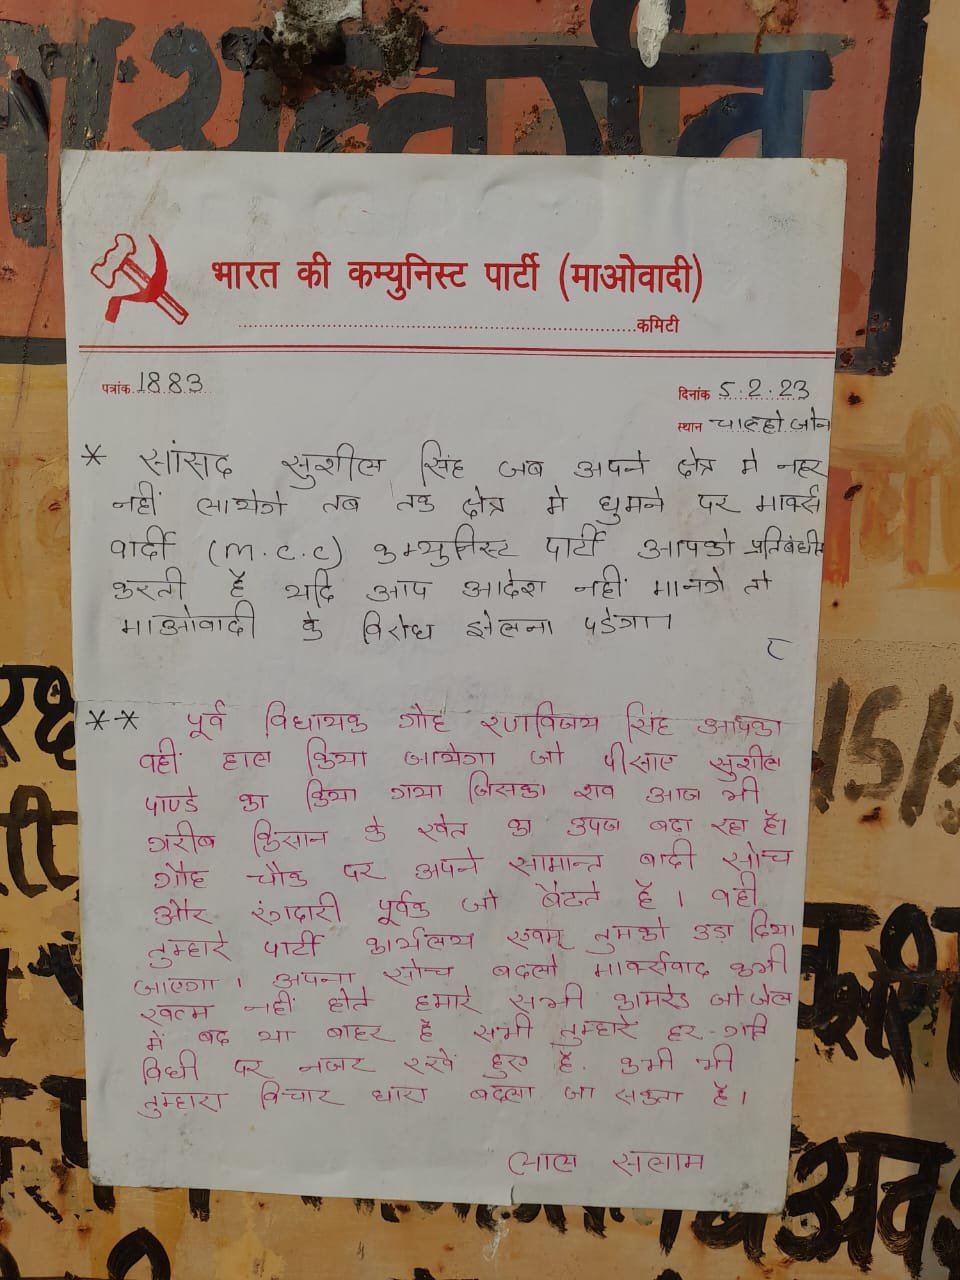 भारत की कम्युनिस्ट पार्टी (माओवादी)
कमिटी
पत्रांक 1883
दिनांक 5.2.23
स्थान चाल्हो जोन
* सांसद सुशील सिंह जब अपने क्षेत्र मे नहर
नहीं लायेगे तब तक क्षेत्र मे घुमने पर मार्क्स
वादी (m.c.c) कम्युनिस्ट पार्टी आपको प्रतिबंधीत
करती है यदि आप आदेश नहीं मानगे तो
माओवादी के विरोध झेलना पड़ेगा।
** पूर्व विधायक गोह रणविजय सिंह आपका
वहीं हाल किया जायेगा जो पीसाए सुशील
पाण्डे का किया गया जिसका शव आज भी
गरीब किसान के खेत का उपज बढ़ा रहा है।
गोह चौक पर अपने सामान्त बादी सोच
और रंगदारी पूर्वक जो बैठते है। वही
तुम्हारे पार्टी कार्यलय एवम् तुमको उड़ा दिया
जाएगा। अपना सोच बदलो मार्क्सवाद कभी
खत्म नहीं होते हमारे सभी कामरेड जो जेल
में बंद या बाहर है सभी तुम्हारे हर गति
विधी पर नजर रखे हुए है. कभी भी
तुम्हारा विचार धारा बदला जा सकता है।
लाल सलाम